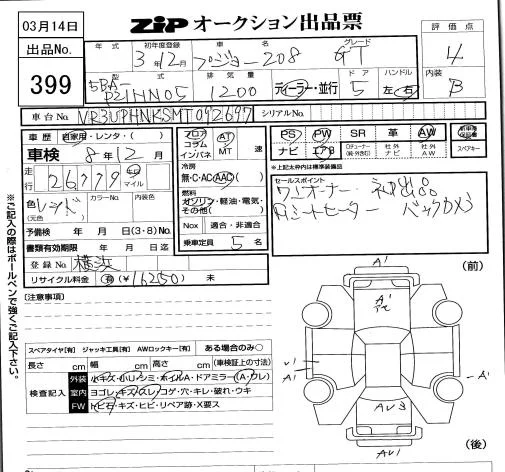 03月14日
ZIP オークション出品票
評価点
4
内装
B
出品No.
399
年式
初年度登録
3年12月
車名
プジョー208
グレード
GT
型式
5BA-P21HN05
排気量
1200
ディーラー・並行
ドア
5
ハンドル
左・右
車台No.
VR3UPHNKSMT092697
シリアルNo.
車歴
自家用・レンタ・( )
車検 8年12月
走行
26779
マイル
色
レッド
(元色)
カラーNo.
内装色
予備検 年 月 日(3・8)No.
書類有効期限 年 月 日迄
登録No.
横浜
リサイクル料金
有(¥16250) 未
フロア
コラム
インパネ
AT
MT
速
冷房
無・C・AC・AAC
燃料
ガソリン・軽油・電気・
その他( )
Nox
適合・非適合
乗車定員 5 名
PS PW SR 革 AW
ナビ エアB
社外ナビ
社外AW
スペアキー
*上記太枠内は標準装備品
セールスポイント
ワンオーナー
シートヒーター バックカメラ
※ご記入の際はボールペンで強くご記入下さい。
[注意事項]
スペアタイヤ[有] ジャッキ工具[有] AWロックキー[有] ある場合のみ○
長さ cm 幅 cm 高さ cm (車検証上の寸法)
検査記入
外装
小キズ・小U・シミ・ホイルA・ドアミラー(A・ワレ)
室内
ヨゴレ・キズ・スレ・コゲ・穴・キレ・破れ・ウキ
FW
トビ石・キズ・ヒビ・リペア跡・X要ス
(前)
A1
A1
U1
A1
A1
AU3
AU1
(後)